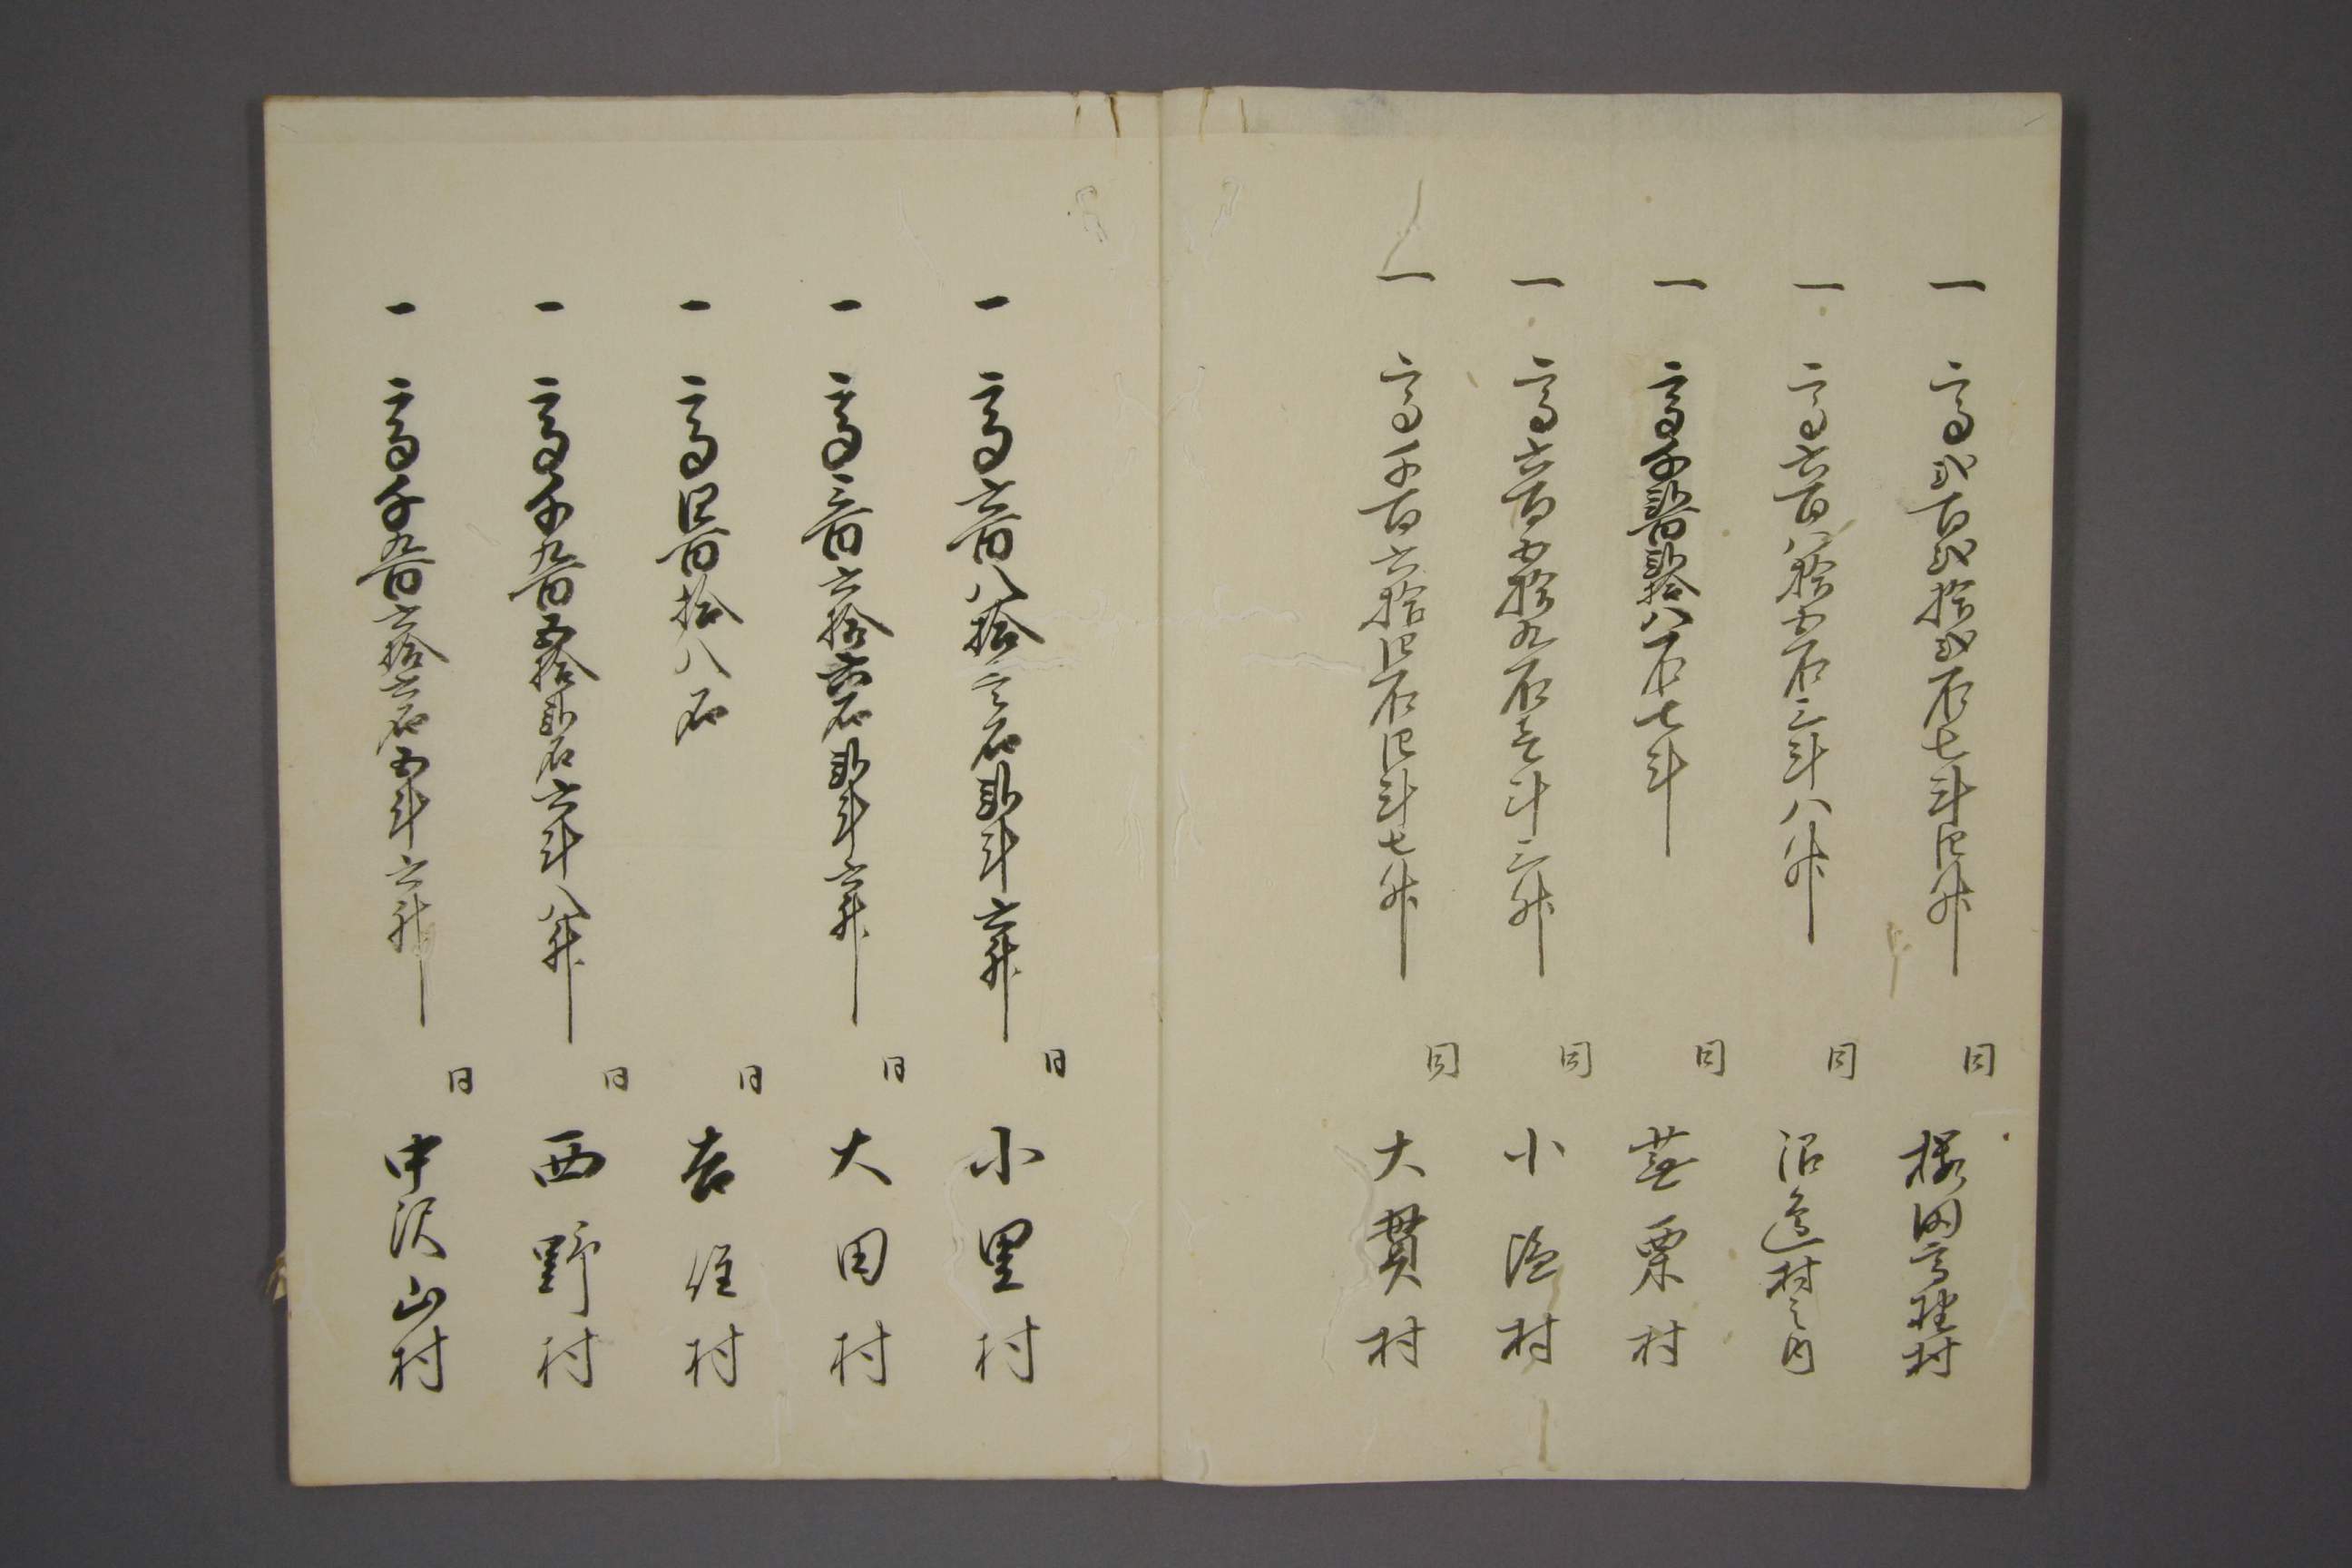 一 高弐百弐拾弐石七斗四升 同 桜田高野村
一 高六百八拾五石三斗八升 同 沼邊村之内
一 高千貮百貮拾八石七斗 同 蕪栗村
一 高六百五拾九石壱斗三升 同 小塩村
一 高千百六拾四石四斗七升 同 大貫村
一 高六百八拾三石貮斗六升 同 小里村
一 高三百六拾六石貮斗六升 同 大田村
一 高四百拾八石 同 吉住村
一 高千九百五拾貮石六斗八升 同 西野村
一 高千九百六拾六石五斗六升 同 中沢山村